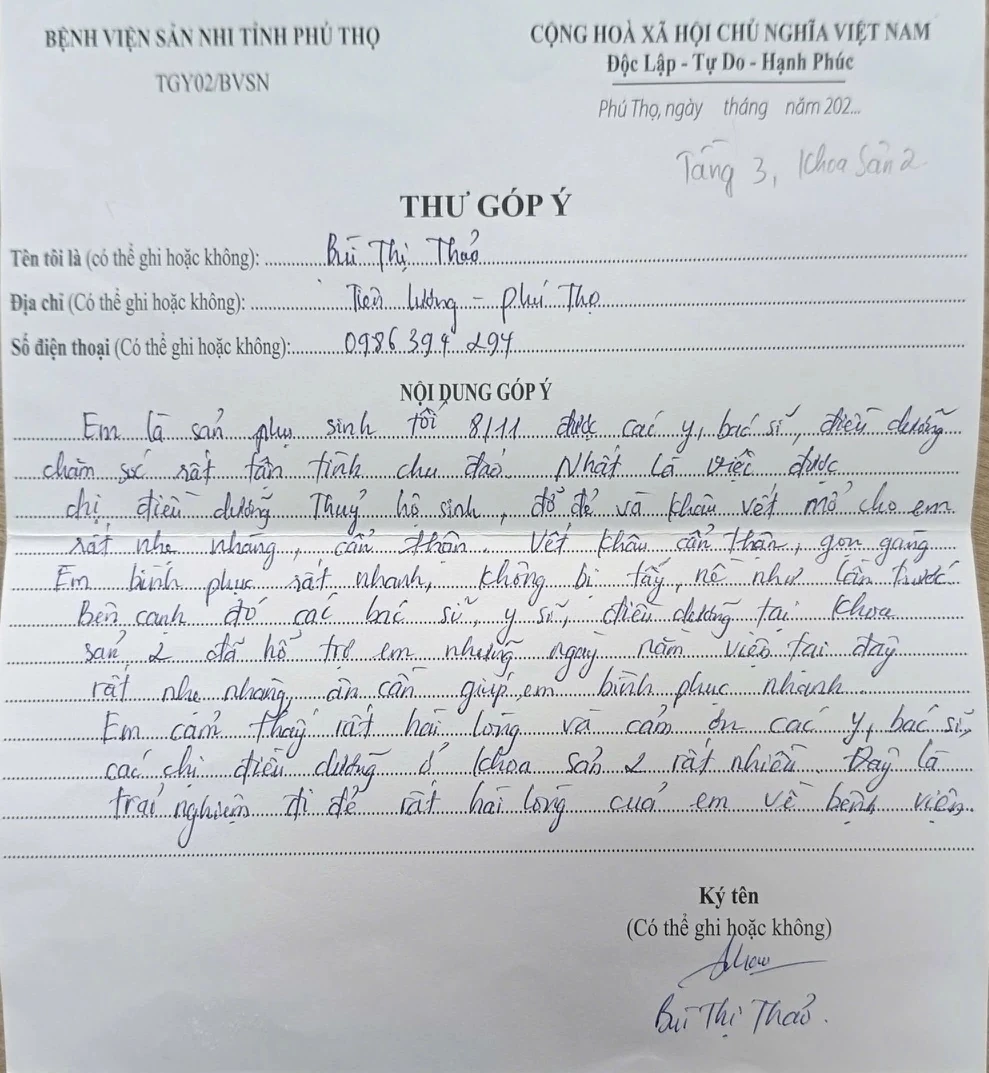 BỆNH VIỆN SẢN NHI TỈNH PHÚ THỌ
TGY02/BVSN
CỘNG HOÀ XÃ HỘI CHỦ NGHĨA VIỆT NAM
Độc Lập - Tự Do - Hạnh Phúc
Phú Thọ, ngày tháng năm 202...
Tầng 3, Khoa Sản 2
THƯ GÓP Ý
Tên tôi là (có thể ghi hoặc không): Bùi Thị Thảo
Địa chỉ (Có thể ghi hoặc không): Tiên Lương - Phú Thọ
Số điện thoại (Có thể ghi hoặc không): 0986 394 294
NỘI DUNG GÓP Ý
Em là sản phụ sinh tối 8/11 được các y, bác sĩ, điều dưỡng
chăm sóc rất tận tình chu đáo. Nhất là việc được
chị điều dưỡng Thuỷ hộ sinh, đỡ đẻ và khâu vết mổ cho em
rất nhẹ nhàng, cẩn thận. Vết khâu cẩn thận, gọn gàng
Em bình phục rất nhanh, không bị tấy, nề như lần trước
Bên cạnh đó các bác sĩ, y sĩ, điều dưỡng tại khoa
sản 2 đã hỗ trợ em những ngày nằm viện tại đây
rất nhẹ nhàng, ân cần giúp em bình phục nhanh.
Em cảm thấy rất hài lòng và cảm ơn các y, bác sĩ,
các chị điều dưỡng ở khoa sản 2 rất nhiều. Đây là
trải nghiệm đi đẻ rất hài lòng của em về bệnh viện.
Ký tên
(Có thể ghi hoặc không)
Bùi Thị Thảo.